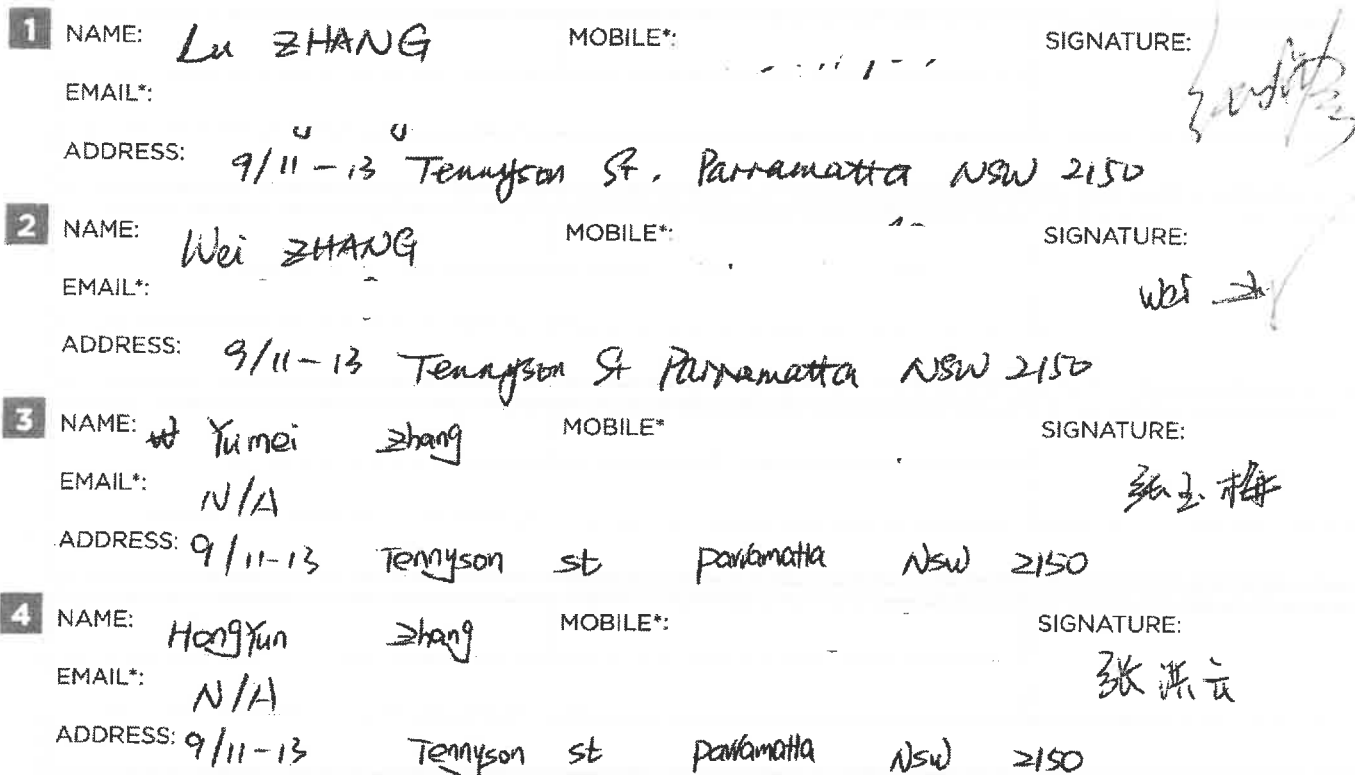 1 NAME: Lu ZHANG MOBILE*: SIGNATURE:
EMAIL*:
ADDRESS: 9/11-13 Tennyson St. Parramatta NSW 2150
2 NAME: Wei ZHANG MOBILE*: SIGNATURE:
EMAIL*: Wei zh
ADDRESS: 9/11-13 Tennyson St Parramatta NSW 2150
3 NAME: Yumei Zhang MOBILE* SIGNATURE:
EMAIL*: N/A 张玉梅
ADDRESS: 9/11-13 Tennyson st parramatta NSW 2150
4 NAME: HongYun Zhang MOBILE*: SIGNATURE:
EMAIL*: N/A 张洪云
ADDRESS: 9/11-13 Tennyson st parramatta NSW 2150